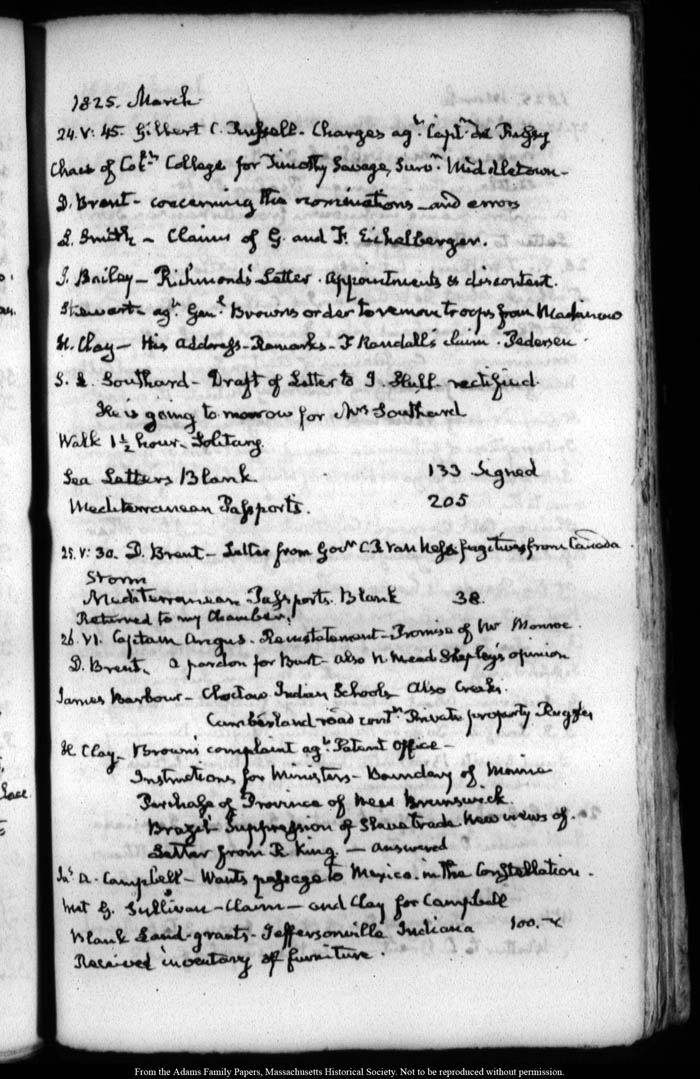 1825. March.
24. V: 45. Gilbert C. Russell. Charges agt. Captn. de Russy
Chaes of Coln. College for Timothy Savage, Survr. Middletown—
D. Brent— concerning the nominations and errors
L. Smith— Claims of G. and F. Eichelberger.
J. Bailey— Richmond's Letter. Appointments & discontent.
Stewart agt. Genl. Browns order to remove troops from Mackinaw
H. Clay— His Address— Remarks— T Randall's claim. Pedersen
S. L. Southard— Draft of Letter to I. Hull rectified.
He is going to morrow for Mrs Southard
Walk 1½ hour. Solitary.
Sea Letters Blank 133 Signed
Mediterranean Passports. 205
25. V: 30. D. Brent— Letter from Govr. C. P. Van Ness fugitives from Canada
Storm
Mediterranean Passports. Blank 38.
Returned to my Chamber.
26. VI. Captain Angus. Reinstatement— Promise of Mr Monroe.
D. Brent. a pardon for Burt— also N. Mead Shepley's opinion
James Barbour— Choctaw Indian Schools Also Creeks.
Cumberland road contn. Private property Ruggles
H. Clay— Brown's complaint agt. Patent Office—
Instructions for Ministers— Boundary of Maine
Purchase of Province of New Brunswick.
Brazil— Suppression of Slave trade. New views of.
Letter from R King— answered
Jno. A. Campbell— Wants passage to Mexico. in the Constellation.
Met G. Sullivan— Claim— and Clay for Campbell
Blank Land-grants— Jeffersonville Indiana 100.
Received inventory of furniture.
From the Adams Family Papers, Massachusetts Historical Society. Not to be reproduced without permission.